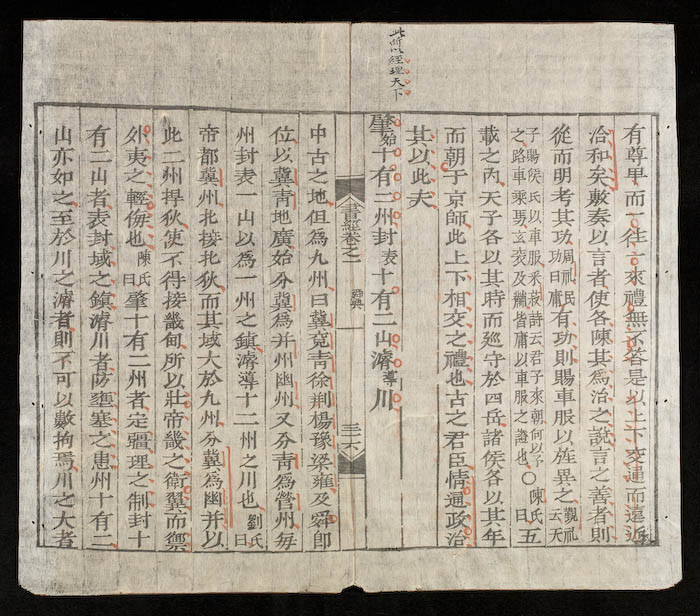 此所以經理天下
有尊卑而一往一來禮無不答是以上下交通而遠近
洽和矣敷奏以言者使各陳其爲治之說言之善者則
從而明考其功周禮民功曰庸有功則賜車服以旌異之覲禮云天
子賜侯氏以車服采菽詩云君子來朝何以予
之路車乘馬玄袞及黼皆庸以車服之證也○陳氏曰五
載之內天子各以其時而廵守於四岳諸侯各以其年
而朝于京師此上下相交之禮也古之君臣情通政治
其以此夫
肇始十有二州封表十有二山濬導川
書經卷之一 舜典 三六
中古之地但爲九州曰冀兗青徐荆楊豫梁雍及舜卽
位以冀青地廣始分冀爲并州幽州又分青爲營州每
州封表一山以爲一州之鎭濬導十二州之川也劉氏曰
帝都冀州北接北狄而其域大於九州分冀爲幽并以
此二州捍狄使不得接畿甸所以壯帝畿之衛翼而禦
外夷之輕侮也陳氏曰肇十有二州者定疆理之制封十
有二山者表封域之鎭濬川者防壅塞之患州十有二
山亦如之至於川之濬者則不可以數拘焉川之大者